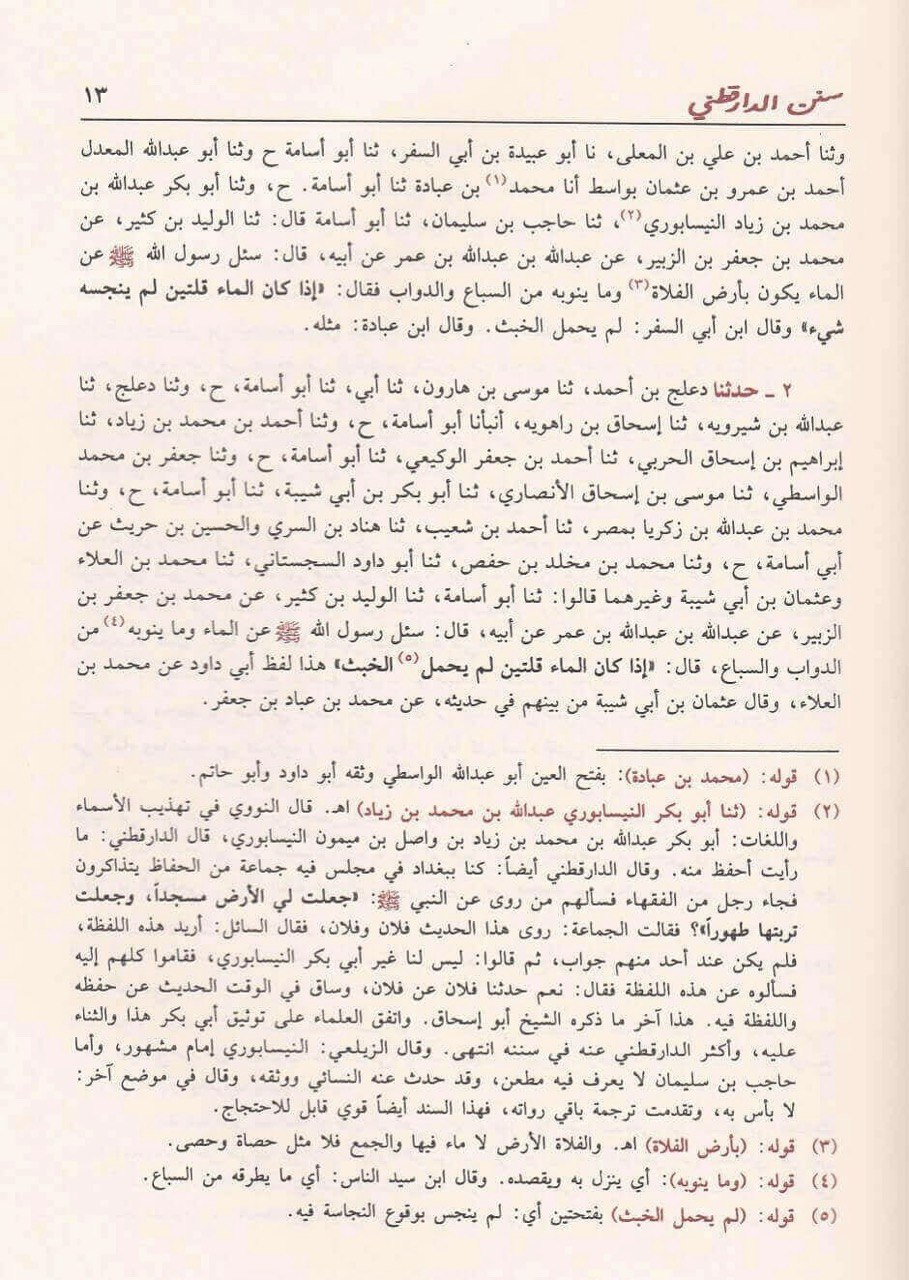 سنن الدارقطني
١٣
وثنا أحمد بن علي بن المعلى، نا أبو عبيدة بن أبي السفر، ثنا أبو أسامة ح وثنا أبو عبدالله المعدل
أحمد بن عمرو بن عثمان بواسط أنا محمد(١) بن عبادة ثنا أبو أسامة. ح، وثنا أبو بكر عبدالله بن
محمد بن زياد النيسابوري(٢)، ثنا حاجب بن سليمان، ثنا أبو أسامة قال: ثنا الوليد بن كثير، عن
محمد بن جعفر بن الزبير، عن عبدالله بن عبدالله بن عمر عن أبيه، قال: سئل رسول الله ﷺ عن
الماء يكون بأرض الفلاة(٣) وما ينوبه من السباع والدواب فقال: «إذا كان الماء قلتين لم ينجسه
شيء» وقال ابن أبي السفر: لم يحمل الخبث. وقال ابن عبادة: مثله.
٢ - حدثنا دعلج بن أحمد، ثنا موسى بن هارون، ثنا أبي، ثنا أبو أسامة، ح، وثنا دعلج، ثنا
عبدالله بن شيرويه، ثنا إسحاق بن راهويه، أنبأنا أبو أسامة، ح، وثنا أحمد بن محمد بن زياد، ثنا
إبراهيم بن إسحاق الحربي، ثنا أحمد بن جعفر الوكيعي، ثنا أبو أسامة، ح، وثنا جعفر بن محمد
الواسطي، ثنا موسى بن إسحاق الأنصاري، ثنا أبو بكر بن أبي شيبة، ثنا أبو أسامة، ح، وثنا
محمد بن عبدالله بن زكريا بمصر، ثنا أحمد بن شعيب، ثنا هناد بن السري والحسين بن حريث عن
أبي أسامة، ح، وثنا محمد بن مخلد بن حفص، ثنا أبو داود السجستاني، ثنا محمد بن العلاء
وعثمان بن أبي شيبة وغيرهما قالوا: ثنا أبو أسامة، ثنا الوليد بن كثير، عن محمد بن جعفر بن
الزبير، عن عبدالله بن عبدالله بن عمر عن أبيه، قال: سئل رسول الله ﷺ عن الماء وما ينوبه(٤) من
الدواب والسباع، قال: «إذا كان الماء قلتين لم يحمل(٥) الخبث» هذا لفظ أبي داود عن محمد بن
العلاء، وقال عثمان بن أبي شيبة من بينهم في حديثه، عن محمد بن عباد بن جعفر.
(١) قوله: (محمد بن عبادة): بفتح العين أبو عبدالله الواسطي وثقه أبو داود وأبو حاتم.
(٢) قوله: (ثنا أبو بكر النيسابوري عبدالله بن محمد بن زياد) اهـ. قال النووي في تهذيب الأسماء
واللغات: أبو بكر عبدالله بن محمد بن زياد بن واصل بن ميمون النيسابوري، قال الدارقطني: ما
رأيت أحفظ منه. وقال الدارقطني أيضاً: كنا ببغداد في مجلس فيه جماعة من الحفاظ يتذاكرون
فجاء رجل من الفقهاء فسألهم من روى عن النبي ﷺ: «جعلت لي الأرض مسجداً، وجعلت
تربتها طهوراً»؟ فقالت الجماعة: روى هذا الحديث فلان وفلان، فقال السائل: أريد هذه اللفظة،
فلم يكن عند أحد منهم جواب، ثم قالوا: ليس لنا غير أبي بكر النيسابوري، فقاموا كلهم إليه
فسألوه عن هذه اللفظة فقال: نعم حدثنا فلان عن فلان، وساق في الوقت الحديث عن حفظه
واللفظة فيه. هذا آخر ما ذكره الشيخ أبو إسحاق. واتفق العلماء على توثيق أبي بكر هذا والثناء
عليه، وأكثر الدارقطني عنه في سننه انتهى. وقال الزيلعي: النيسابوري إمام مشهور، وأما
حاجب بن سليمان لا يعرف فيه مطعن، وقد حدث عنه النسائي ووثقه، وقال في موضع آخر:
لا بأس به، وتقدمت ترجمة باقي رواته، فهذا السند أيضاً قوي قابل للاحتجاج.
(٣) قوله: (بأرض الفلاة) اهـ. والفلاة الأرض لا ماء فيها والجمع فلا مثل حصاة وحصى.
(٤) قوله: (وما ينوبه): أي ينزل به ويقصده. وقال ابن سيد الناس: أي ما يطرقه من السباع.
(٥) قوله: (لم يحمل الخبث) بفتحتين أي: لم ينجس بوقوع النجاسة فيه.